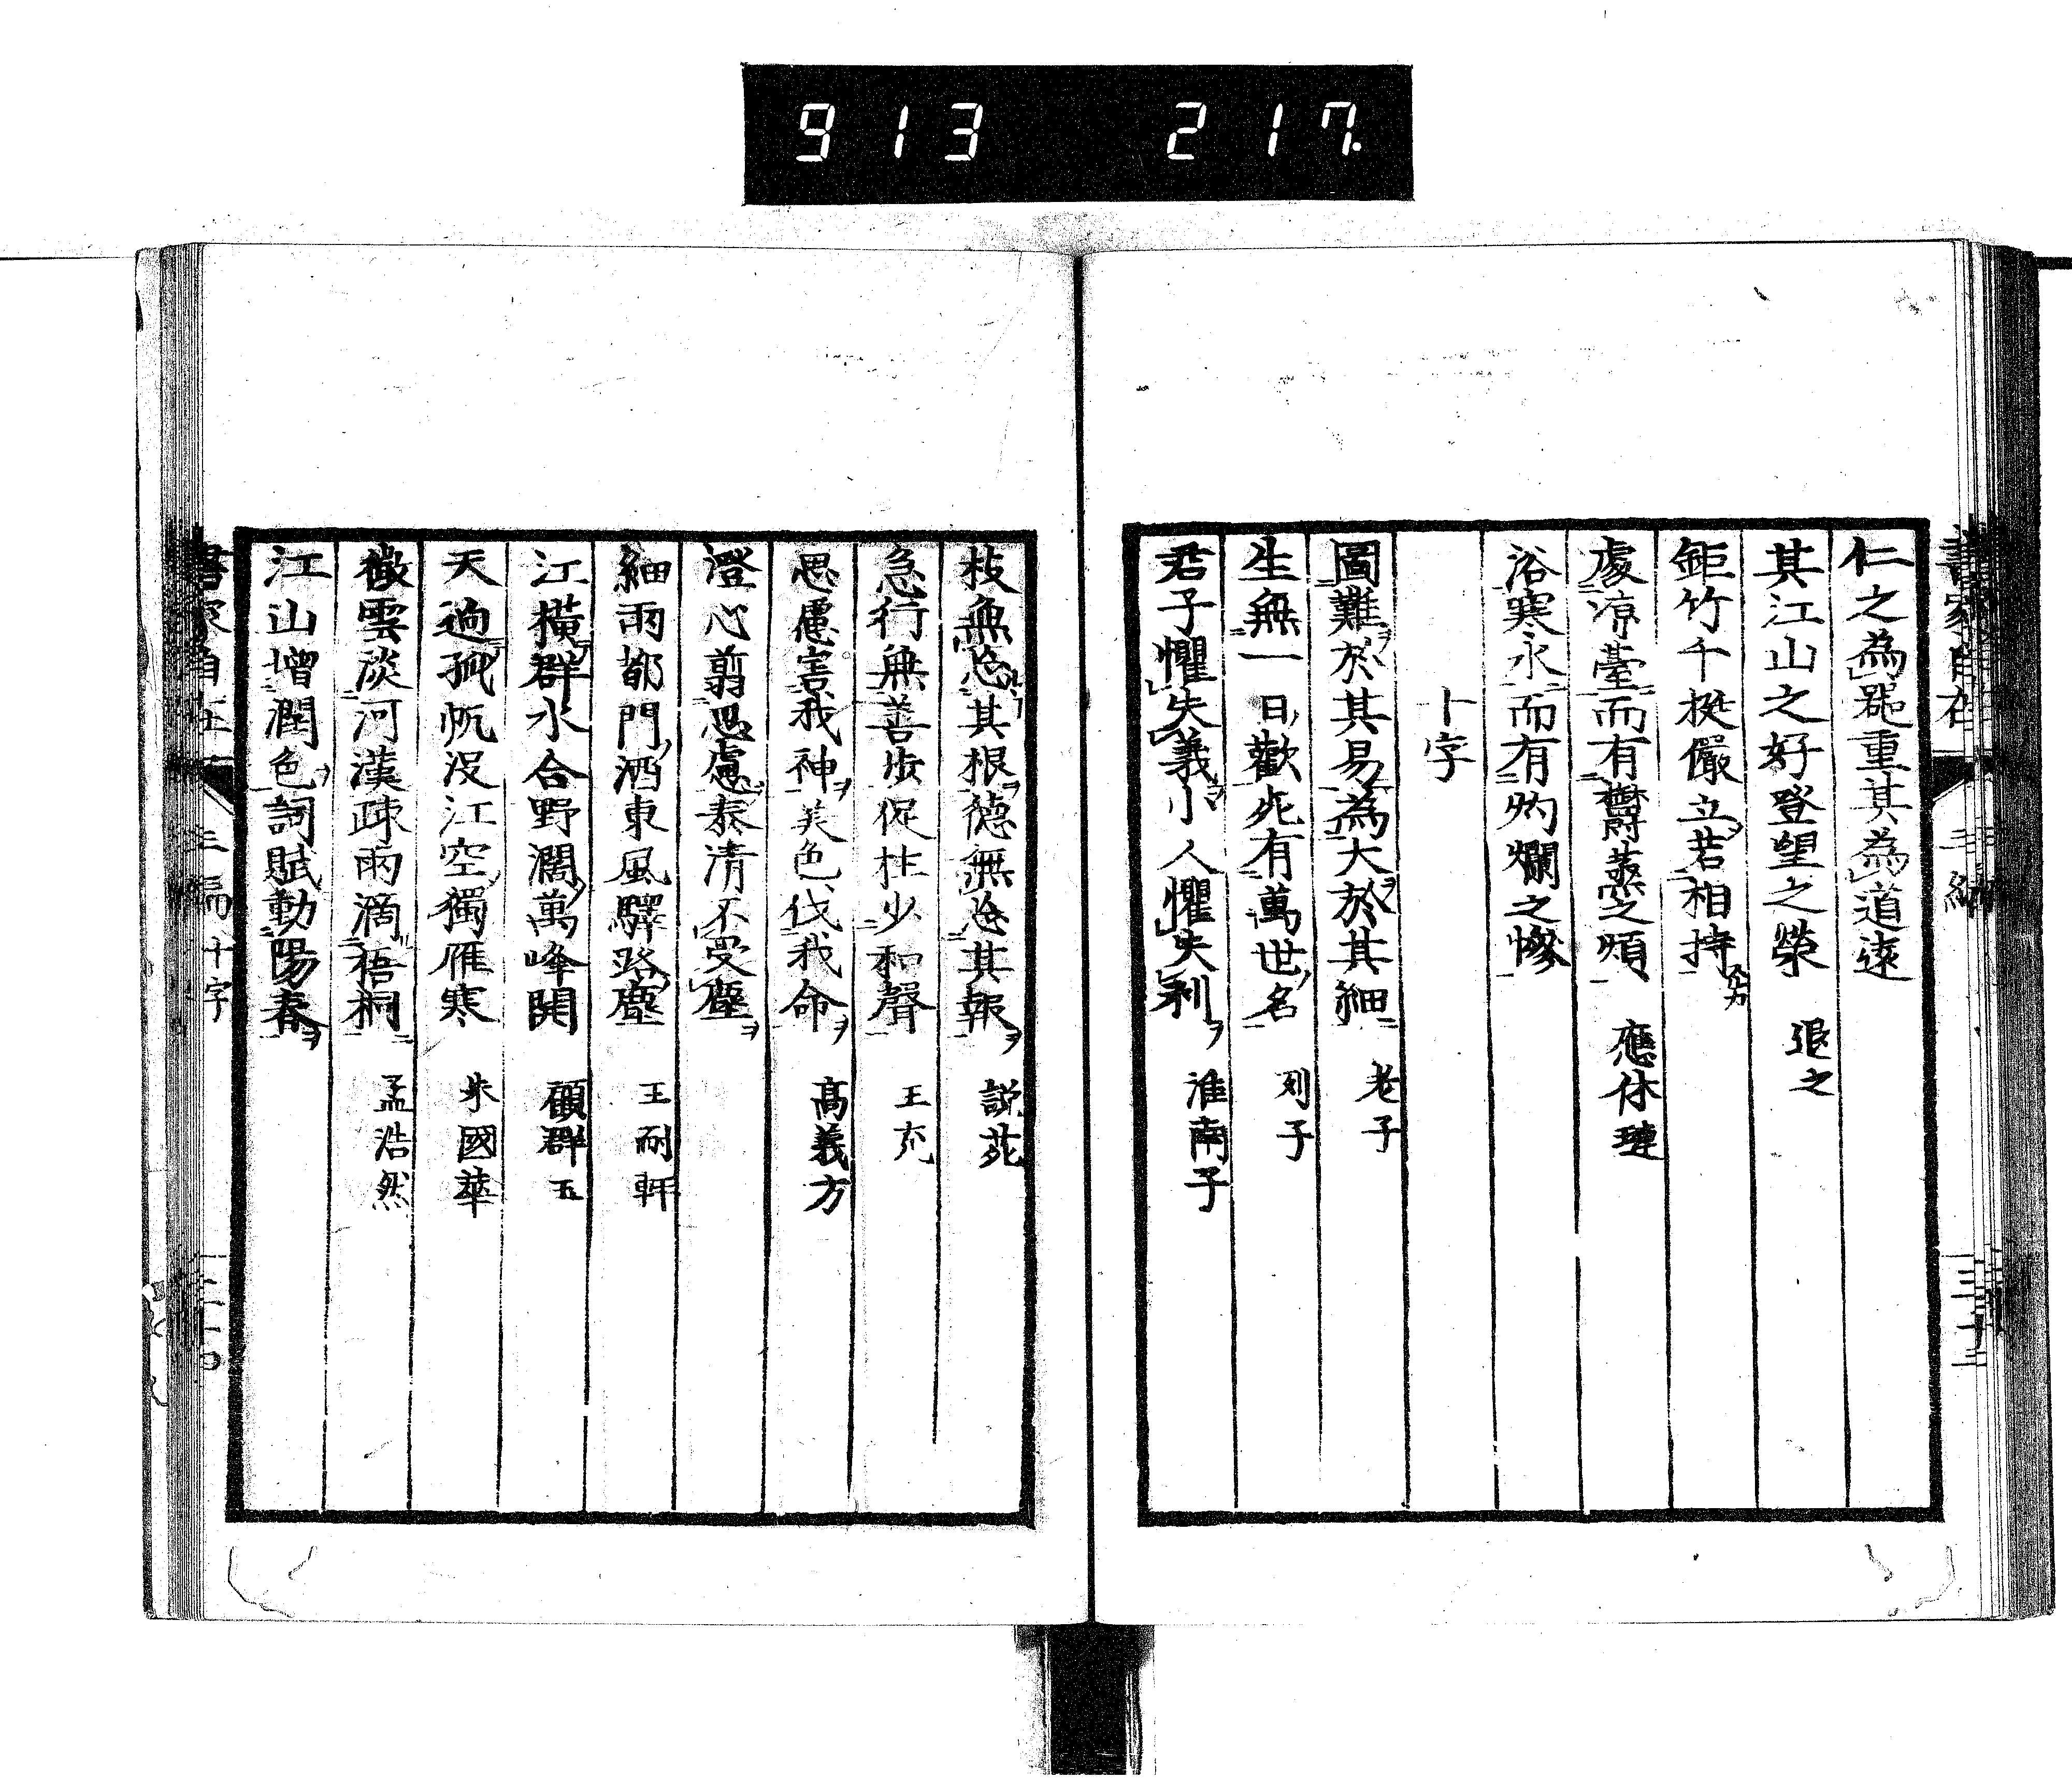 913 217.
仁之為器重其為道遠
其江山之好登望之榮 退之
鉅竹千挺儼立若相持
處凉臺而有欝蒸之煩 應休璉
浴寒水而有灼爛之慘
十字
圖難於其易為大於其細 老子
生無一日歡死有萬世名 列子
君子懼失義小人懼失利 淮南子
三編
枝無忘其根德無忘其報 說苑
急行無善步促柱少和聲 王充
思慮害我神美色伐我命 高義方
澄心剪思慮泰清不受塵
細雨都門酒東風驛路塵 王耐軒
江橫群水合野濶萬峰開 顧群玉
天逈孤帆没江空獨雁寒 朱國華
微雲淡河漢疎雨滴梧桐 孟浩然
江山增潤色詞賦動陽春
三編 十字